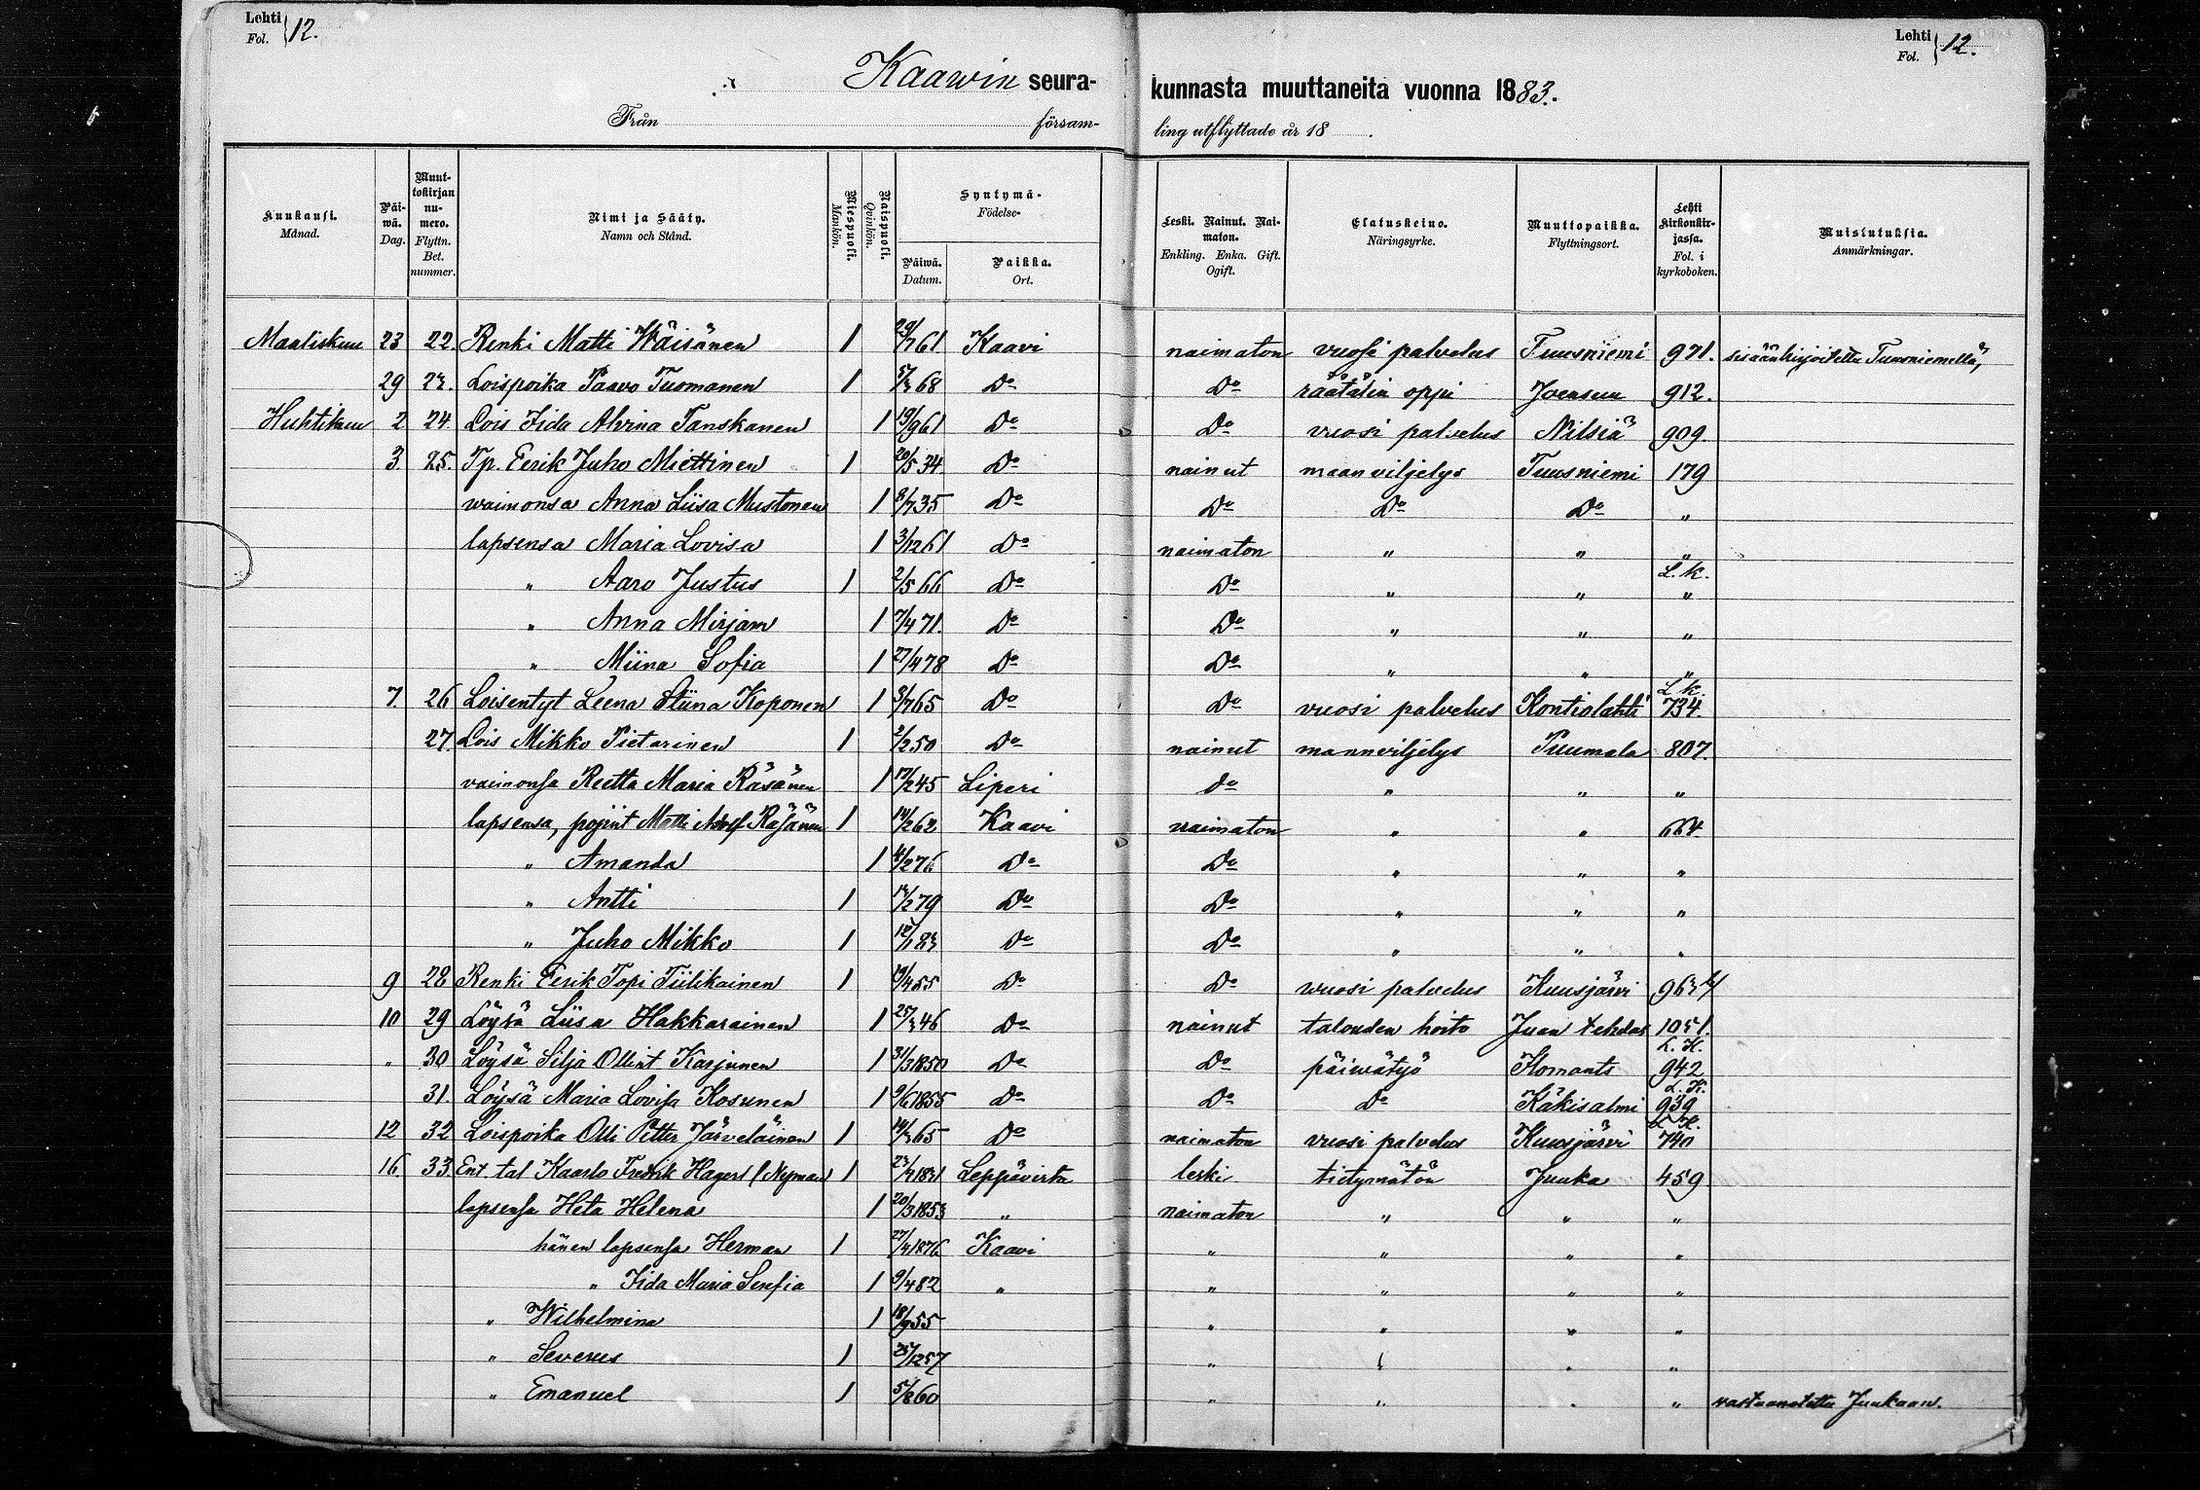 Lehti Fol. 12.
Lehti Fol. 12.
Kaawin seura- kunnasta muuttaneita vuonna 1883.
Från försam- ling utflyttade år 18 .
Kuukausi. Månad. Päi-wä. Dag. Muut-tokirjan nu-mero. Flyttn. Bet. nummer. Nimi ja Sääty. Namn och Stånd. Miespuoli. Mankön. Naispuoli. Qvinkön. Syntymä- Födelse- Päiwä. Datum. Paikka. Ort. Leski. Nainut. Nai-maton. Enkling. Enka. Gift. Ogift. Elatuskeino. Näringsyrke. Muuttopaikka. Flyttningsort. Lehti kirkonkir-jassa. Fol. i kyrkoboken. Muistutuksia. Anmärkningar.
Maaliskuu 23 22. Renki Matti Wäisänen 1 29/7 61 Kaavi naimaton vuosi palvelus Tuusniemi 971. sisäänkirjoitettu Tuusniemellä,
29 23. Loispoika Paavo Tuomanen 1 5/3 68 Do Do räätälin oppi Joensuu 912.
Huhtikuu 2 24. Lois Iida Alvina Tanskanen 1 19/9 61 Do Do vuosi palvelus Nilsiä 909.
3. 25. Tp. Eerik Juho Miettinen 1 20/5 34. Do nainut maanviljelys Tuusniemi 179
waimonsa Anna Liisa Mustonen 1 8/7 35 Do Do Do Do "
lapsensa Maria Lovisa 1 3/12 61 Do naimaton " " "
" Aaro Justus 1 2/5 66 Do Do " " L.k. "
" Anna Mirjam 1 7/4 71. Do Do " " "
" Miina Sofia 1 27/4 78 Do Do " " "
7. 26 Loisentyt Leena Stiina Koponen 1 3/7 65 Do Do vuosi palvelus Kontiolahti L.k. 734.
27. Lois Mikko Pietarinen 1 2/2 50 Do nainut maanviljelys Puumala 807.
vaimonsa Reetta Maria Räsänen 1 17/2 45 Liperi do " " "
lapsensa, pojint Matti Adolf Räsänen 1 14/2 62 Kaavi naimaton " " 664.
" Amanda 1 4/2 76 Do Do " " "
" Antti 1 17/2 79 Do Do " " "
" Juho Mikko 1 12/1 83 Do Do " " "
9 28 Renki Eerik Topi Tiilikainen 1 19/4 55 Do Do vuosi palvelus Kuusjärvi 963
10 29 Löysä Liisa Hakkarainen 1 25/3 46 Do nainut talouden hoito Juan tehdas 1051.
" 30 Löysä Silja Ollint Karjunen 1 31/3 1850 Do Do päiwätyö Ilomants L.K. 942
31. Löysä Maria Lovisa Kosunen 1 9/6 1855 Do Do Do Käkisalmi L.K. 939
12 32 Loispoika Olli Petter Järveläinen 1 14/3 65 Do naimaton vuosi palvelus Kuusjärvi L.K. 740
16. 33. Ent. tal Kaarlo Fredrik Hagert (Nyman 1 23/7 1831 Leppävirta leski tietymätön Juuka 459
lapsensa Heta Helena 1 20/3 1853 " naimaton " " "
hänen lapsensa Herman 1 27/4 1876 Kaavi " " " "
" Iida Maria Serafia 1 9/4 82 " " " " "
" Wilhelmina 1 18/9 55 " " " "
" Severus 1 25/12 57 " " " "
" Emanuel 1 5/8 60 " " " " vastaanotettu Juukaan.